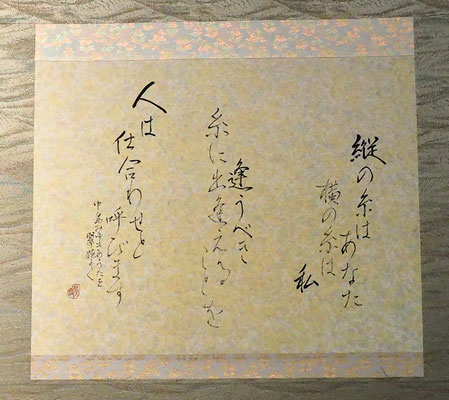 縦の糸は
あなた
横の糸は
私
逢うべき
糸に出逢えることを
人は
仕合わせと
呼びます
中島みゆき うたを